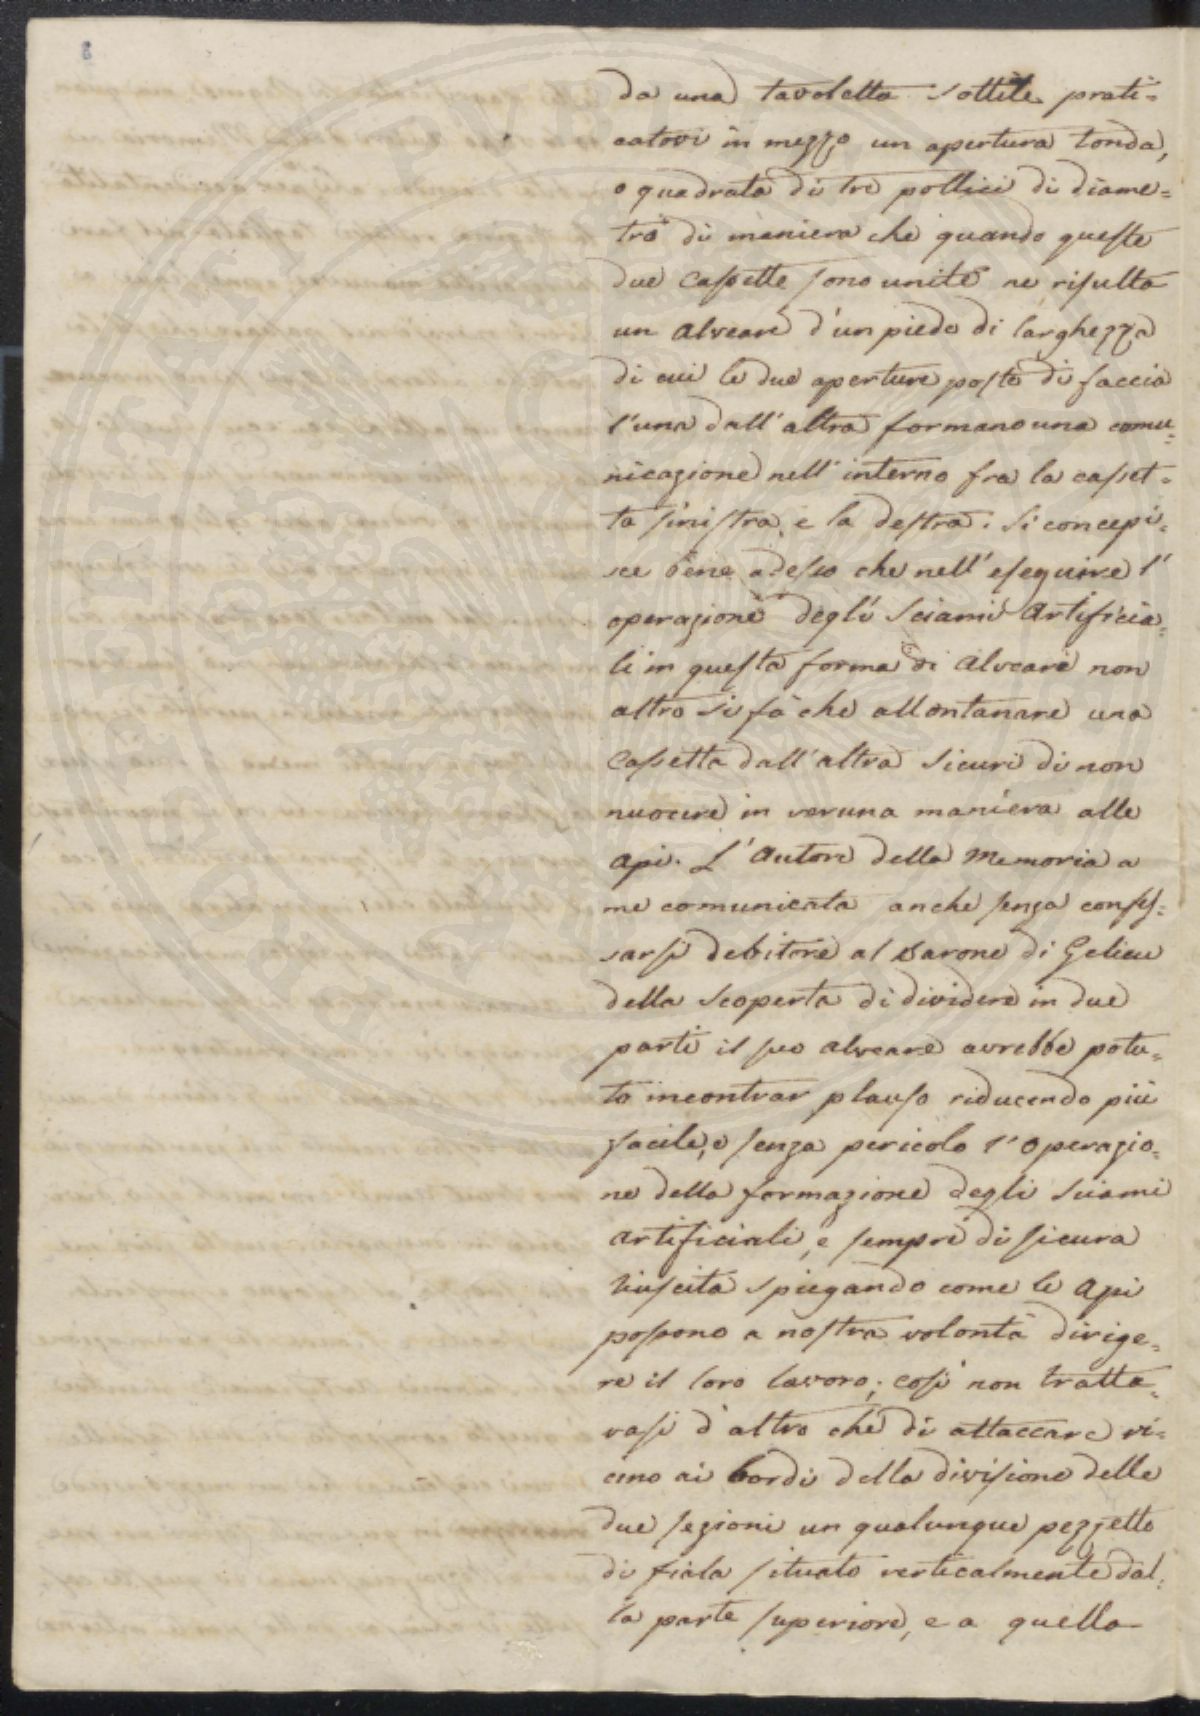 da una tavoletta sottile prati=
catovi in mezzo un apertura tonda,
o quadrata di tre pollici di diame=
tro di maniera che quando queste
due Cassette sono unite ne risulta
un Alveare d'un piede di larghezza
di cui le due aperture poste di faccia
l'una dall'altra formano una comu=
nicazione nell'interno fra la casset=
ta sinistra, e la destra. Si concepi=
sce bene adesso che nell'eseguire l'
operazione degli Sciami Artificia=
li in questa forma di Alveare non
altro si fà che allontanare una
Cassetta dall'altra sicuri di non
nuocere in veruna maniera alle
Api. L'Autore della Memoria a
me comunicata anche senza confes=
sarsi debitore al Barone di Gelieu
della scoperta di dividere in due
parti il suo alveare avrebbe potu=
to incontrar plauso riducendo più
facile, e senza pericolo l'Operazio=
ne della formazione degli sciami
artificiali, e sempre di sicura
riuscita spiegando come le Api
possono a nostra volontà dirige=
re il loro lavoro; così non tratta=
vasi d'altro che di attaccare vi=
cino ai bordi della divisione delle
due sezioni un qualunque pezzetto
di fiala situato verticalmente dal=
la parte superiore, e a quella